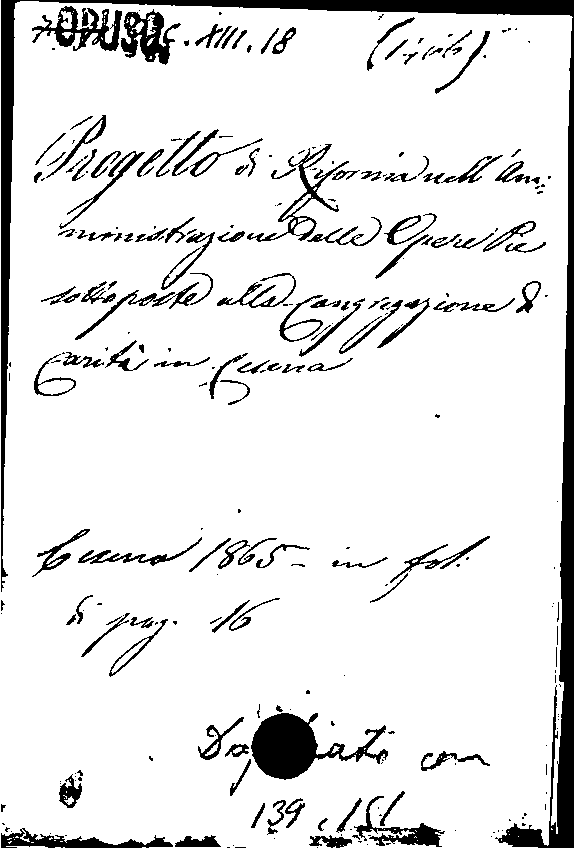 OPUSC. XIII. 18
Progetto di Riforma nell'Am:
ministrazione delle Opere Pie
sottoposte alla Congregazione di
Carità in Cesena
Cesena 1865 - in fol:
di pag. 16
con
139.151